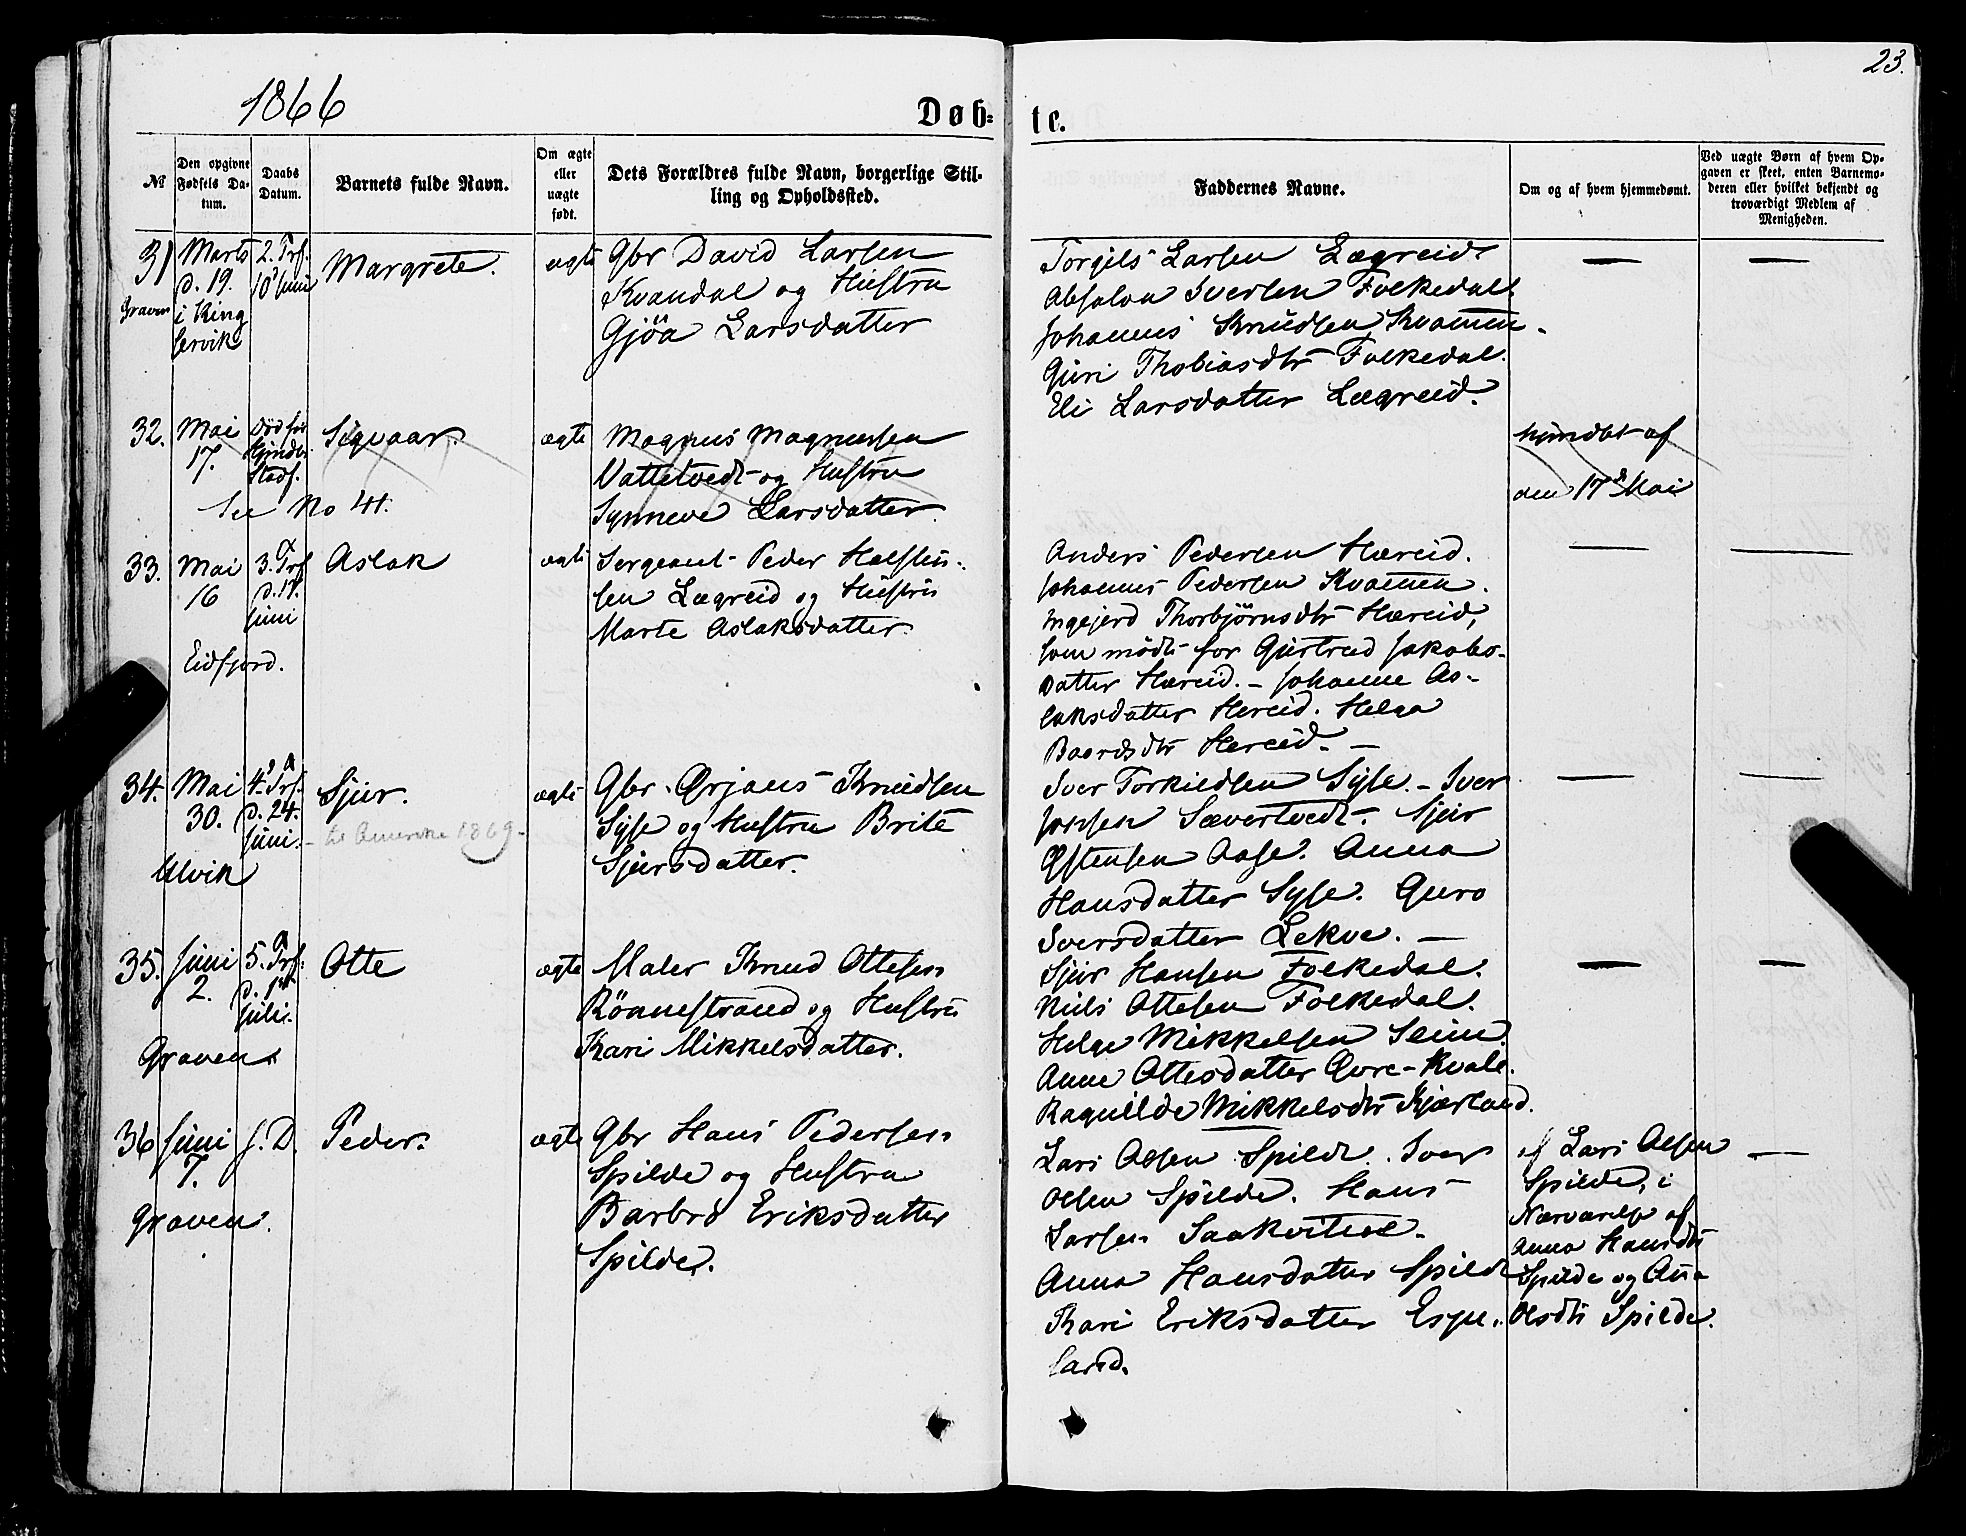 23.
1866
Døb-
te.
№
Den opgivne
Fødsels Da-
tum.
Daabs
Datum.
Barnets fulde Navn.
Om ægte
eller
uægte
født.
Dets Forældres fulde Navn, borgerlige Stil-
ling og Opholdssted.
Faddernes Navne.
Om og af hvem hjemmedøbt.
Ved uægte Børn af hvem Op-
gaven er skeet, enten Barnemo-
deren eller hvilket bekjendt og
troværdigt Medlem af
Menigheden.
31
Graven
Marts
d. 19.
i King
servik
2. Trf.
10 Juni
Margrete.
ægte
Gbr David Larsen
Kvandal og Hustru
Gjöa Larsdatter
Torgils Larsen Lægreid
Absalon Iversen Folkedal.
Johannes Knudsen Kvammen.
Guri Thobiasdtr Folkedal.
Eli Larsdatter Lægreid.
32.
Mai
17.
See No 41.
Sigvaar
ægte
Magnus Magnussen
Vattetvedt og Hustru
Synneve Larsdatter
hjmdbt af
den 17d Mai
33.
Mai
16
Eidfjord.
3. Trf
d. 17.
Juni
Aslak
ægte
Sergeant Peder Halsten-
sen Lægreid og Hustru
Marte Aslaksdatter.
Anders Pedersen Hæreid.
Johannes Pedersen Kvammen.
Ingejerd Thorbjörnsdtr Hæreid,
som mödte for Gjertrud Jakobs-
datter Hæreid. – Johanne As-
laksdatter Hereid. Helga
Baardsdtr Hereid. –
34.
Mai
30.
Ulvik
4. Trf.
d. 24.
Juni.
Sjur.
– til Amerika 1869 –
ægte
Gbr. Ørjans Knudsen
Syse og Hustru Brite
Sjursdatter.
Iver Torkildsen Syse. – Iver
Johsen Sævertvedt. Sjur
Østensen Aase. Anna
Hansdatter Syse. Guro
Iversdatter Lekve. –
35.
Juni
2.
Graven
5. Trf.
d. 1
Juli.
Otte
ægte
Maler Knud Ottesen
Rönnestrand og Hustru
Kari Mikkelsdatter.
Sjur Hansen Folkedal.
Niels Ottesen Folkedal.
Helge Mikkelsen Seim.
Anne Ottesdatter Øvre-Kvale.
Ragnilde Mikkelsdtr Kjærland.
36
Juni
7.
Graven.
J. D.
Peder.
ægte
Gbr Hans Pedersen
Spilde og Hustru
Barbro Eriksdatter
Spilde.
Lars Olsen Spilde. Iver
Olsen Spilde. Hans
Larsen Saakvitne.
Anna Hansdatter Spilde
Kari Eriksdatter Espe-
land.
af Lars Olsen
Spilde, i
Nærværelse af
Anna Hansdtr
Spilde og An-a
Olsdtr Spilde.